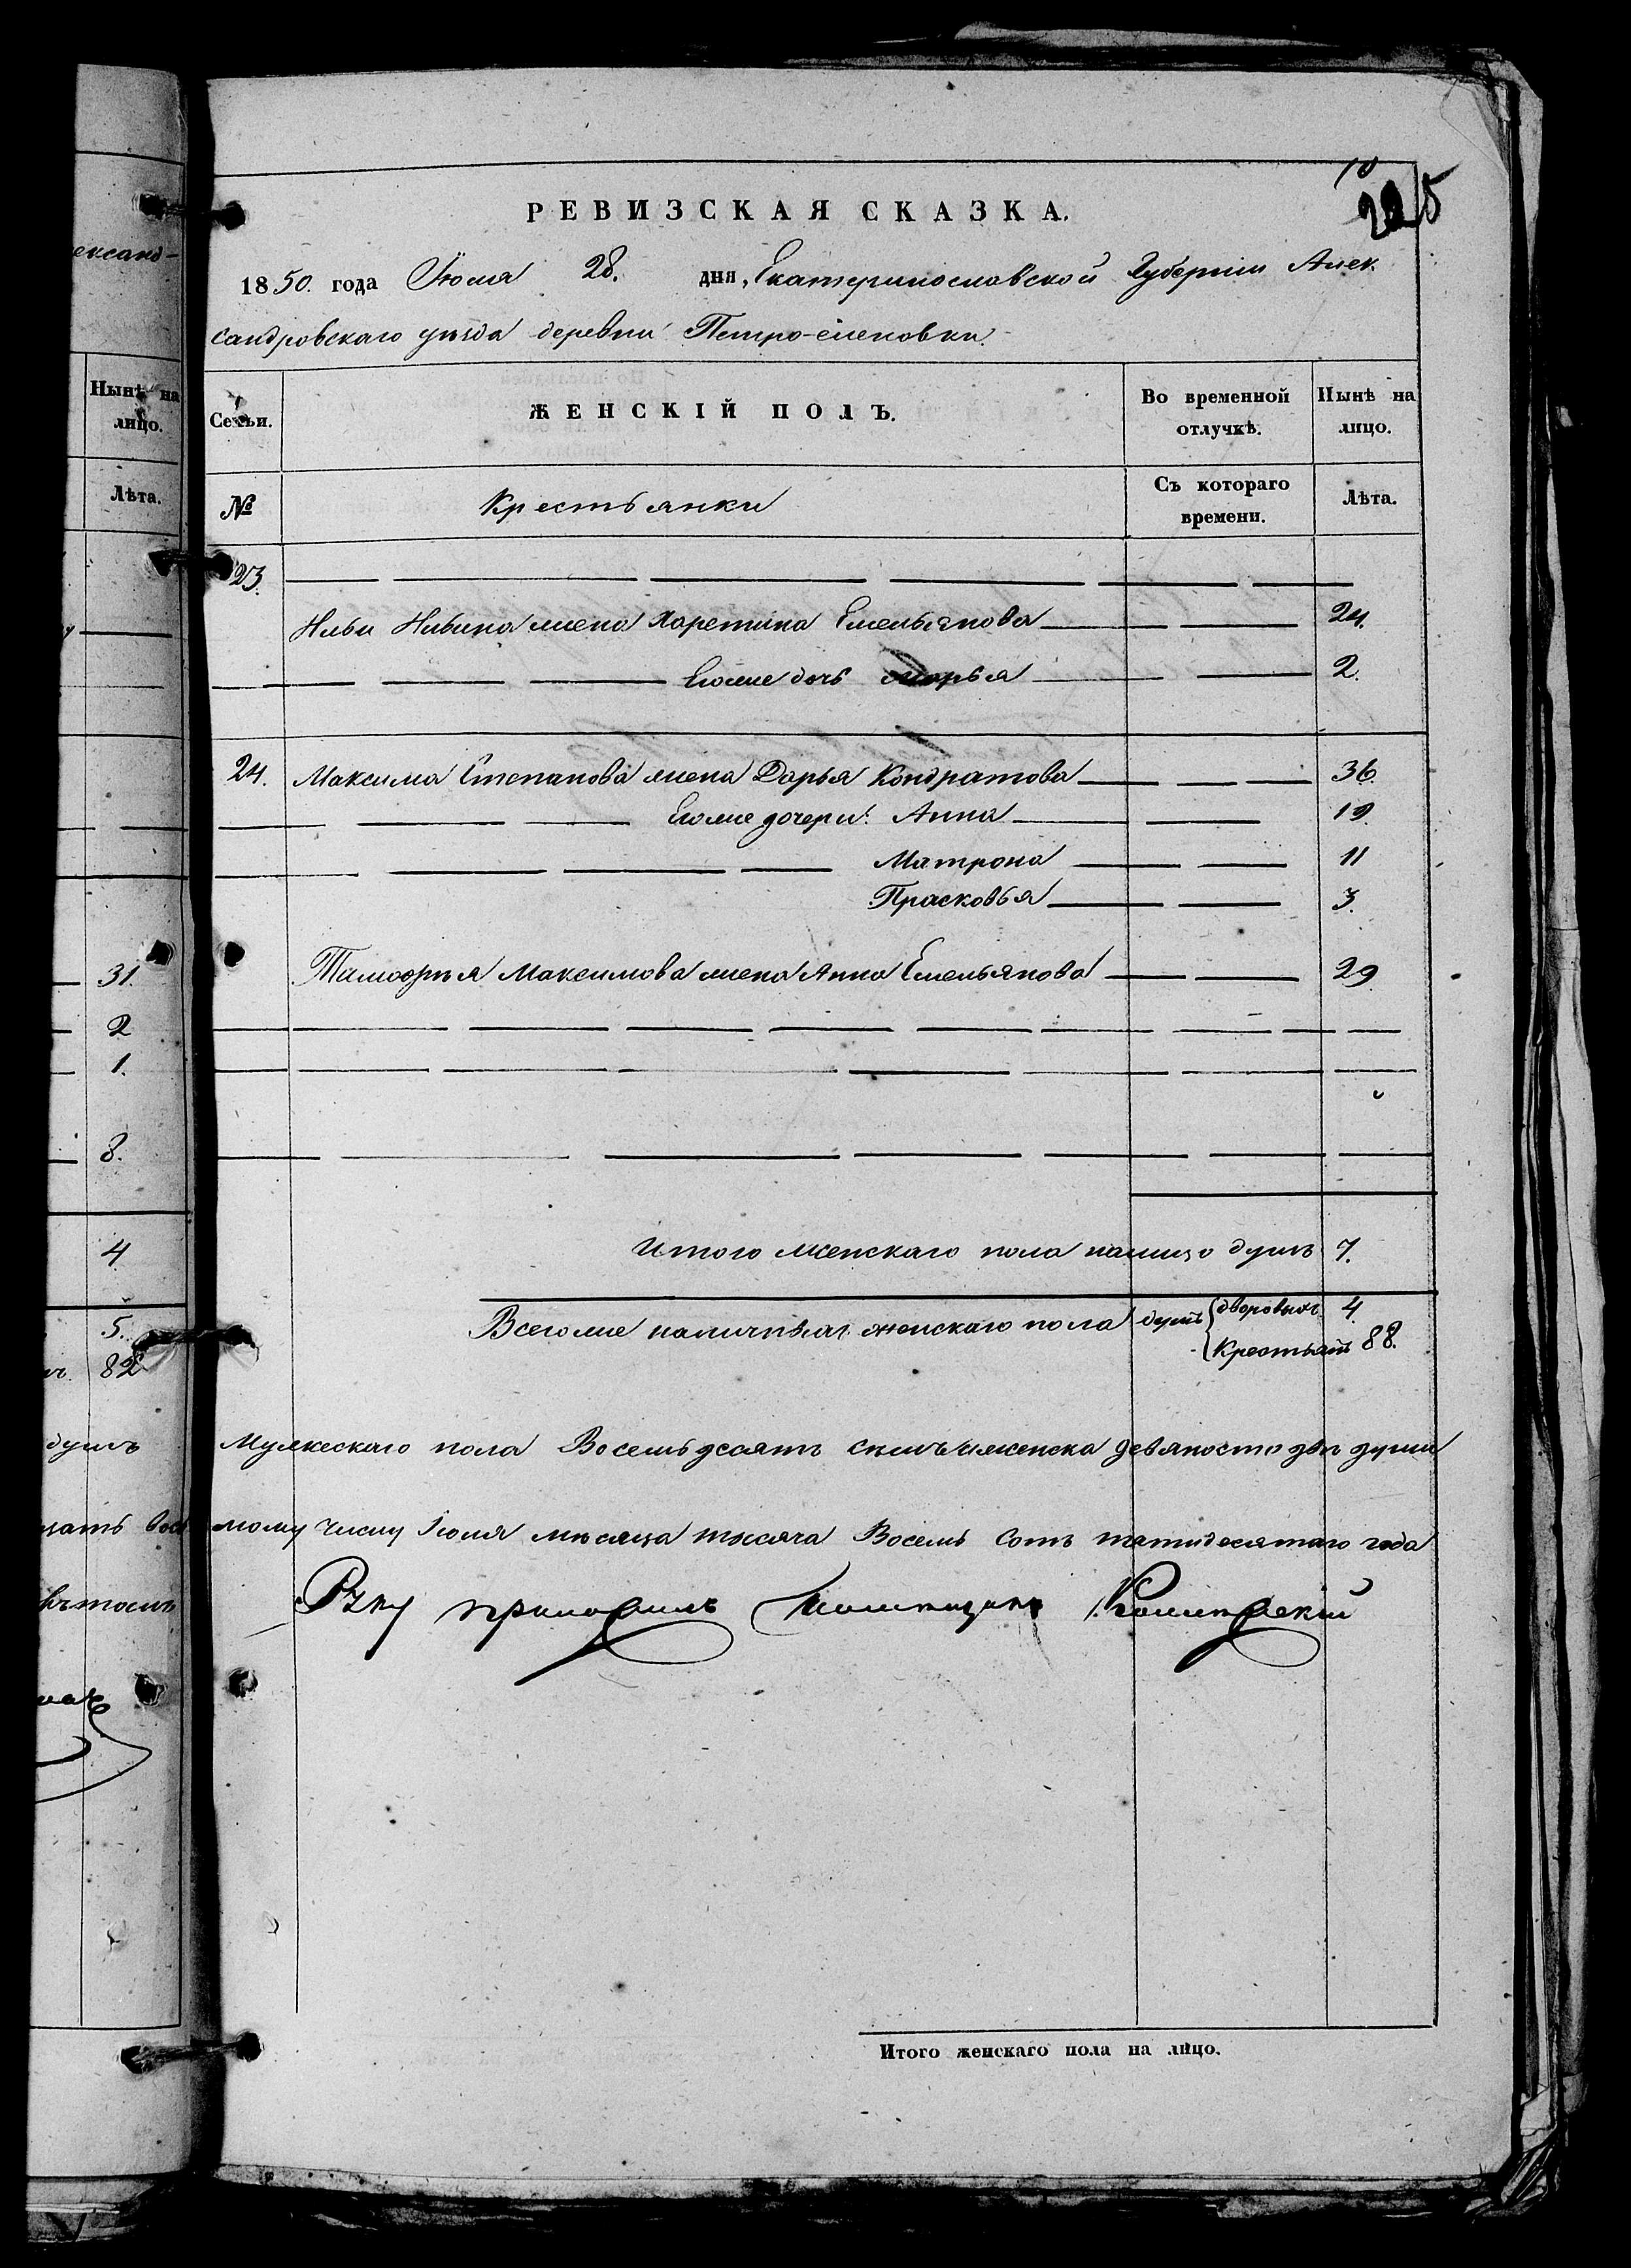 ександ-
Нынѣ на
лицо.
Лѣта.
31.
2
1.
8.
4
5.
82
душъ
10
205
РЕВИЗСКАЯ СКАЗКА.
1850. года Іюля 28. дня, Екатеринославской Губерніи Алек
сандровскаго уѣзда деревни Петро-еленовки.
Семьи.
ЖЕНСКІЙ ПОЛЪ.
Во временной
отлучкѣ.
Нынѣ на
лицо.
№
Крестьянки
Съ котораго
времени.
Лѣта.
23.
Ильи Ильина жена Харетина Емельянова 24.
Егоже дочь Марья 2.
24. Максима Степанова жена Дарья Кондратова 36.
Егоже дочери: Анна 19.
Матрона 11
Прасковья 3.
Максимова жена Анна Емельянова 29
Итого женскаго пола налицо душъ 7.
Всегоже наличныхъ женскаго пола душъ {дворовыхъ 4.
{крестьянъ 88.
Мужескаго пола Восемьдесятъ женска девяносто двѣ души
мому числу Іюля мѣсяца тысяча Восемь сотъ пятидесятаго года
Руку приложилъ
Итого женскаго пола на лицо.